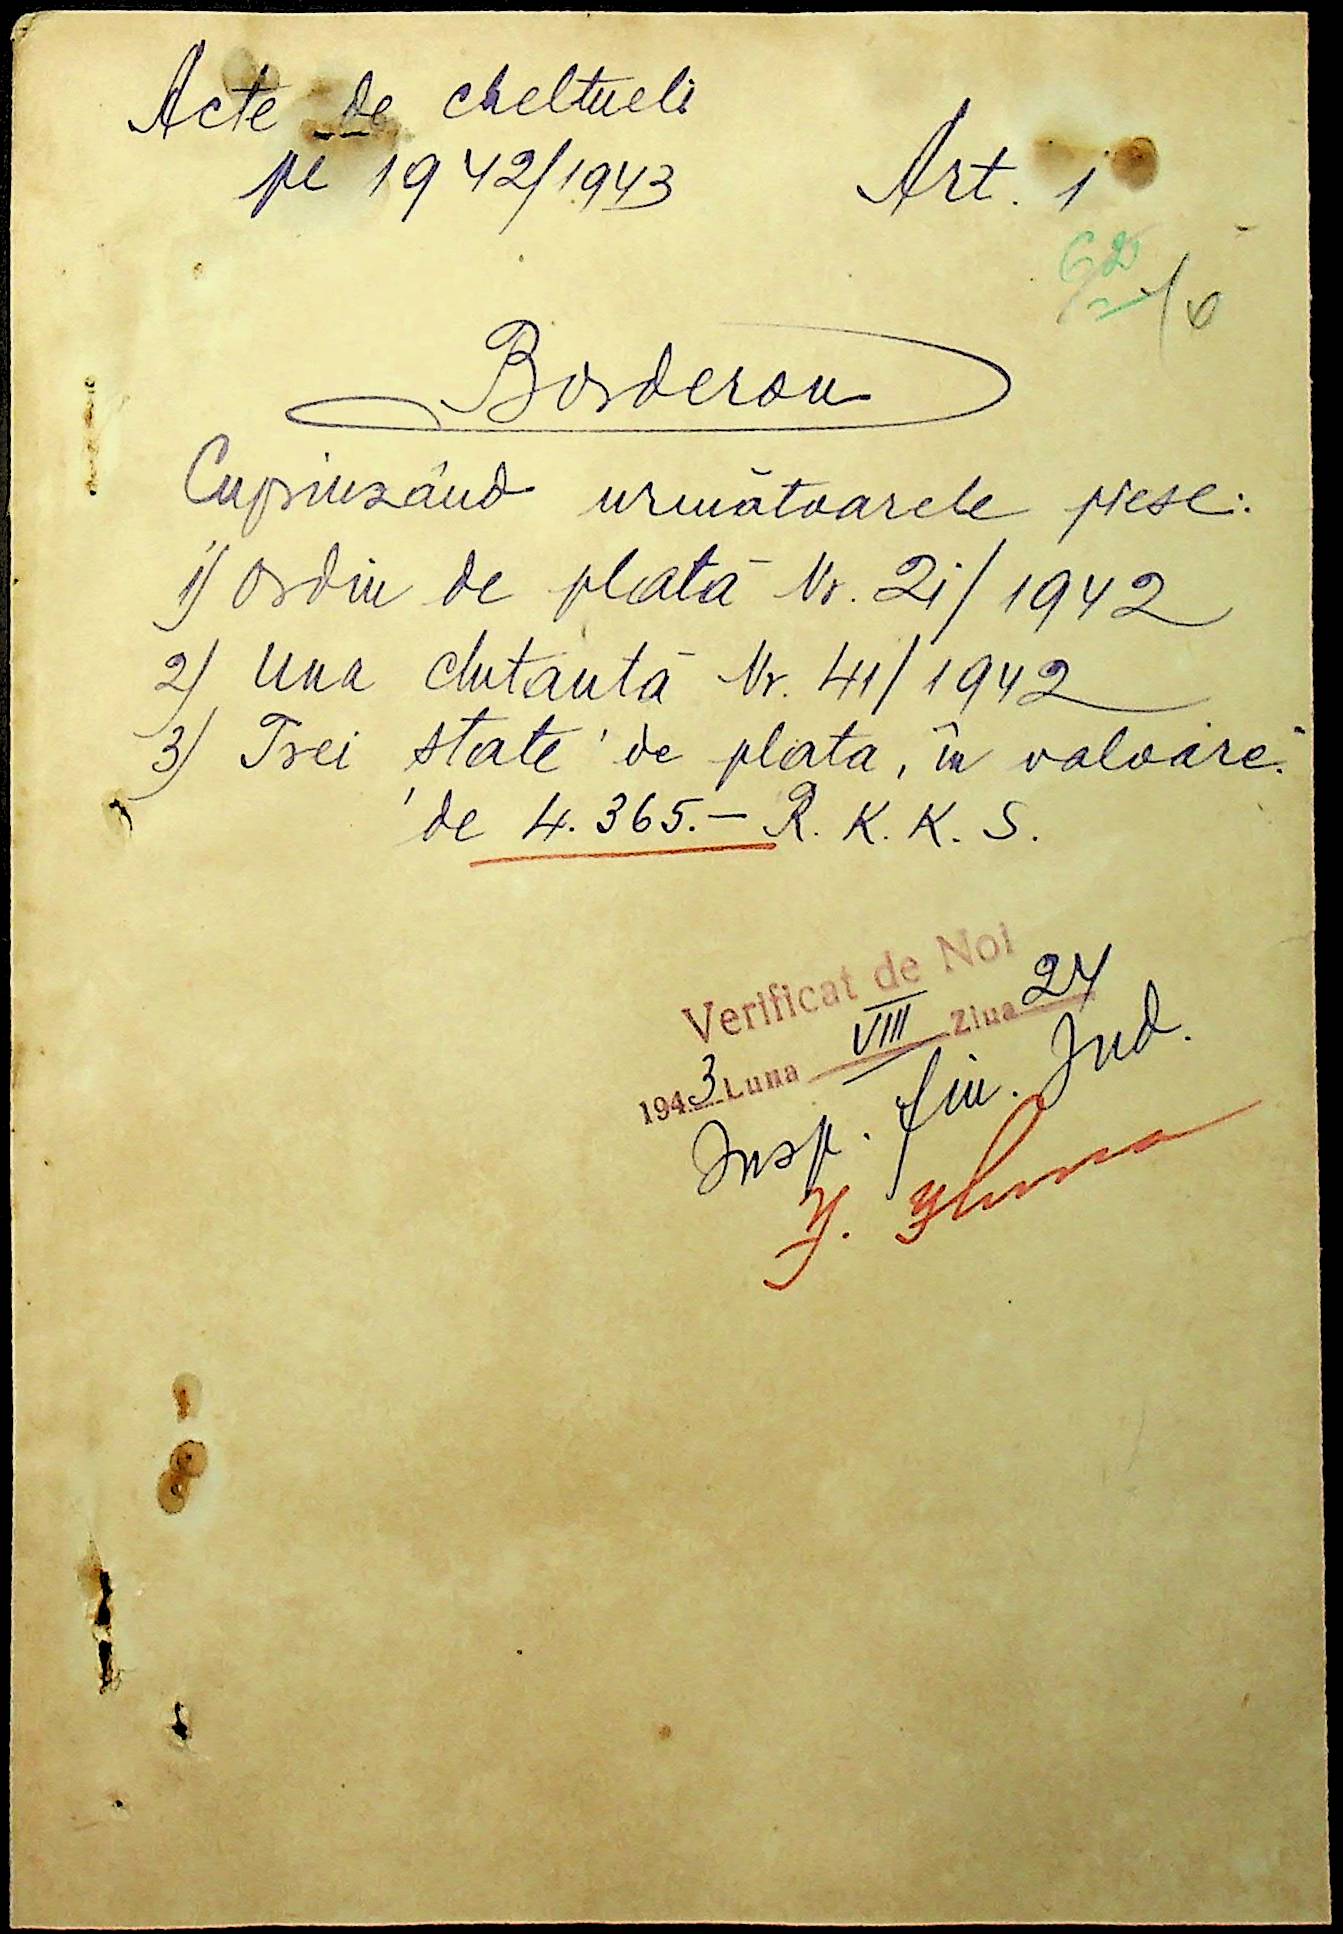 Acte de cheltueli
pe 1942/1943
Art. 1
Borderou
Cuprinzând următoarele piese:
1) Ordin de plată Nr. 21/1942
2) Una chitanță Nr. 41/1942
3) Trei state de plata, în valoare
de 4.365.- R. K. K. S.
Verificat de Noi
1943 Luna VIII Ziua 24
Insp. fin. Jud.